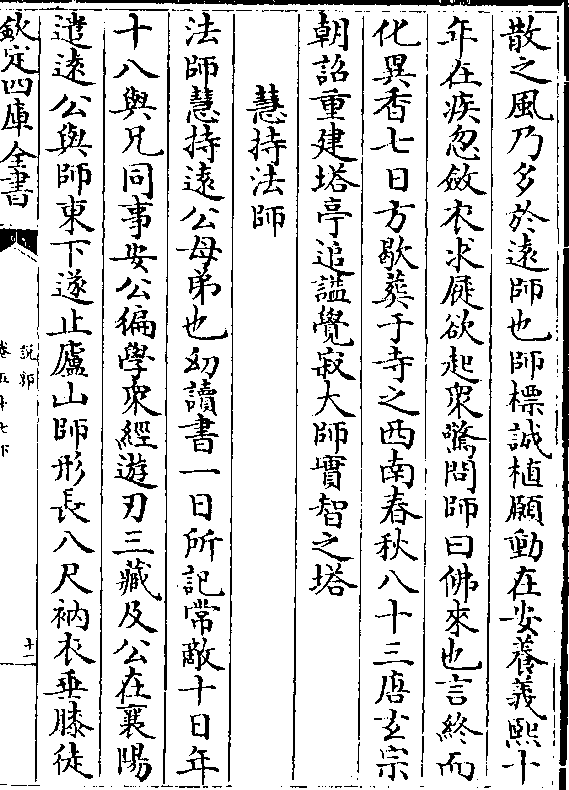 散之風乃多於遠師也師標誠植願動在安養義熙十
年在疾忽斂衣求屣欲起衆驚問師曰佛來也言終而
化異香七日方歇葬于寺之西南春秋八十三唐玄宗
朝詔重建塔亭追諡覺寂大師實智之塔
慧持法師
法師慧持遠公母弟也幼讀書一日所記常敵十日年
十八與兄同事安公徧學衆經遊刃三藏及公在襄陽
遣遠公與師東下遂止廬山師形長八尺衲衣垂膝徒
欽定四庫全書
說郛
卷五十七下
十一